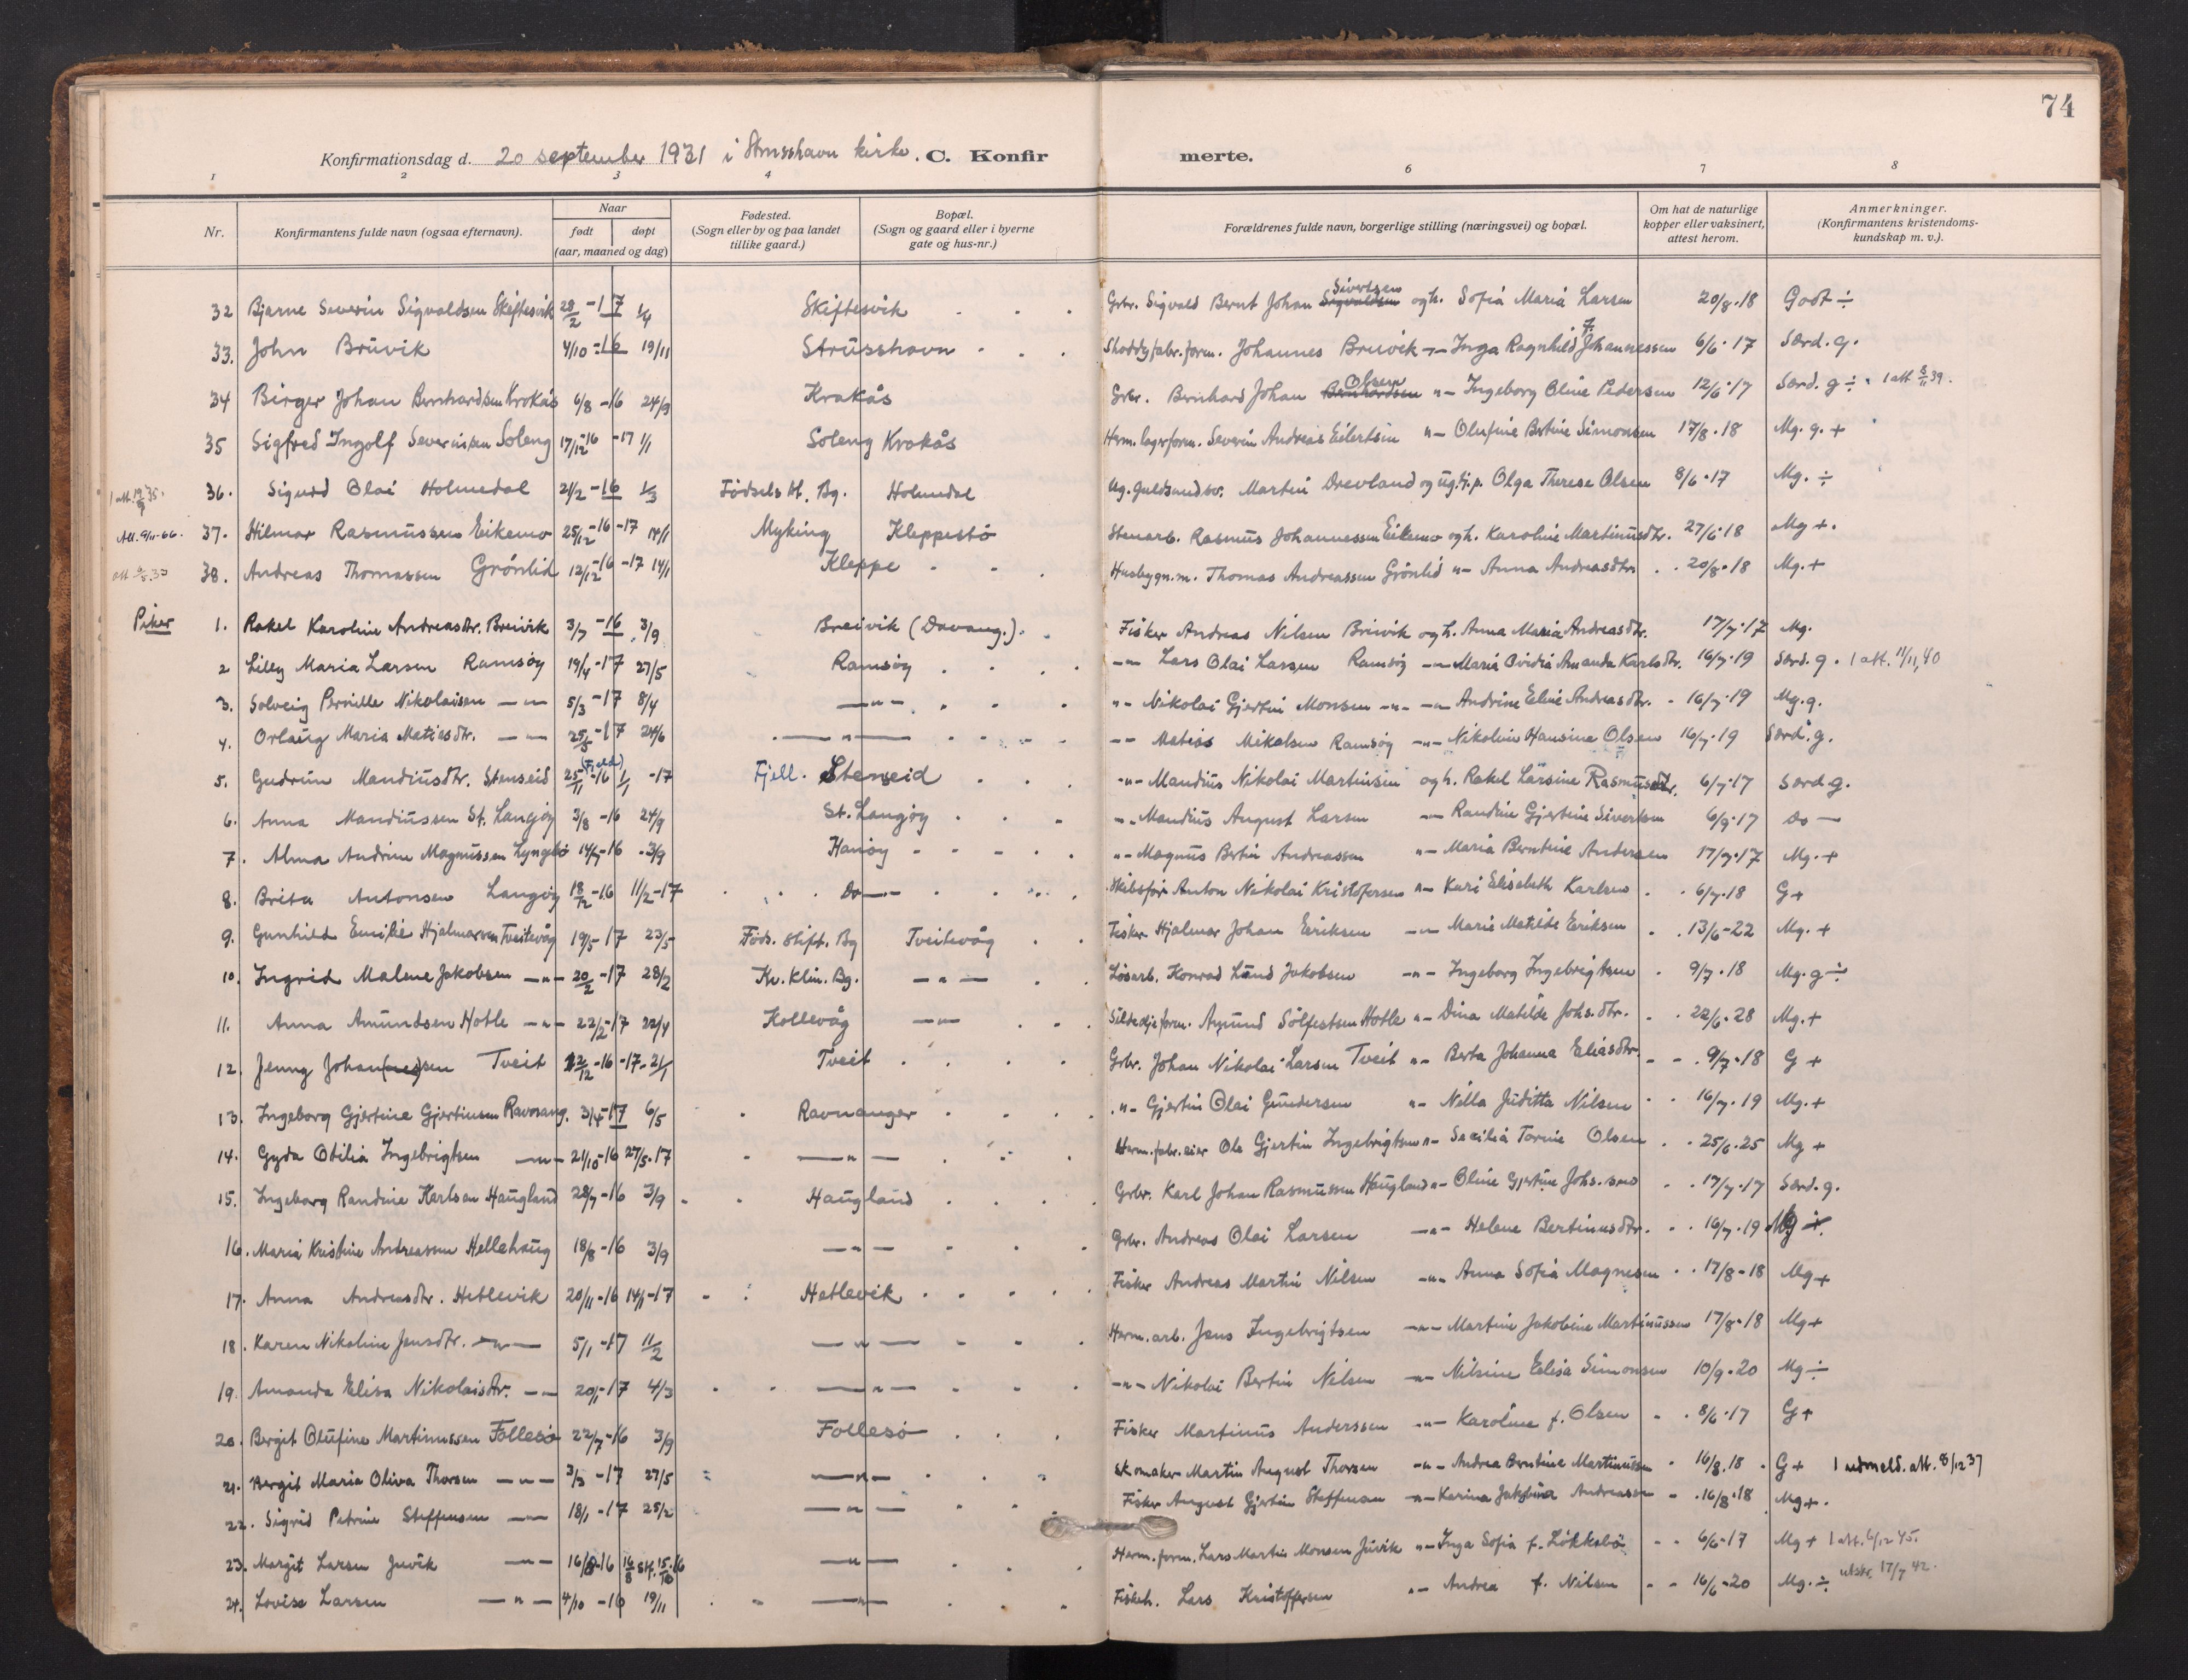 74
Konfirmationsdag d. 20 september 1931 i Strusshavn kirke. C. Konfir merte.
1 2 3 4 6 7 8
Nr. Konfirmantens fulde navn (ogsaa efternavn). Naar født døpt (aar, maaned og dag) Fødested. (Sogn eller by og paa landet tillike gaard.) Bopæl. (Sogn og gaard eller i byerne gate og hus-nr.) Forældrenes fulde navn, borgerlige stilling (næringsvei) og bopæl. Om hat de naturlige kopper eller vaksinert, attest herom. Anmerkninger. (Konfirmantens kristendomskundskap m. v.).
32 Bjarne Severin Sigvaldsen Skiftesvik 28/2 -17 1/4 Skiftesvik Grbr. Sigvald Bernt Johan Sigvaldsen Sivertsen og h. Sofia Maria Larsen 20/8.18 Godt ÷
33. John Brüvik 4/10 -16 19/11 Strüsshavn Shoddyfabr.form. Johannes Bruvik -"- Inga Ragnhild f. Johannessen 6/6.17 Særd. g.
34 Birger Johan Bernhardsen Krokås 6/8 -16 24/9 Krokås Grbr. Bernhard Johan Bernhardsen Olsen "- Ingeborg Oline Pedersen 12/6.17 Særd. g ÷ 1 att. 8/11 39.
35 Sigfred Ingolf Severinsen Soleng 17/12 -16 -17 1/1 Soleng Krokås Herm. lagerform. Severin Andreas Eilertsen "- Olufine Bertine Simonsen 17/8.18 Mg. g. +
36. Sigurd Olai Holmedal 21/2 -16 1/3 Fødsels st. Bg. Holmedal Ug. guldsmedsv. Martin Drevland og ug. tj.p. Olga Therese Olsen 8/6.17 Mg. ÷
Att. 9/11-66. 37. Hilmar Rasmussen Eikemo 25/12 -16 -17 14/1 Myking Kleppestø Stenarb. Rasmus Johannessen Eikemo og h. Karoline Martinusdtr. 27/6.18 Mg +.
38. Andreas Thomassen Grönlid 12/12 -16 -17 14/1 Kleppe Husbygn.m. Thomas Andreassen Grönlid "- Anna Andreasdtr. 20/8.18 Mg. +
Piker 1. Rakel Karoline Andreasdtr. Breivik 3/7 -16 3/9 Breivik (Davang.). Fisker Andreas Nilsen Breivik og h. Anna Maria Andreasdtr. 17/7.17 Mg.
2 Lilly Maria Larsen Ramsöy 19/4 -17 27/5 Ramsöy -"- Lars Olai Larsen Ramsöy -"- Maria Ovidia Amanda Karlsdtr. 16/7.19 Særd. g. 1 att. 11/11,40
3. Solveig Pernille Nikolaisen -"- 5/3 -17 8/4 -"- "- Nikolai Gjertin Monsen -"- -"- Andrine Eline Andreasdtr. 16/7.19 Mg. g.
4. Orlaug Maria Matiasdtr. -"- 25/5 -17 24/6 -"- -"- Matias Mikalsen Ramsöy -"- Nikoline Hansine Olsen 16/7.19 Særd. g.
5. Gudrun Mandiusdtr. Stenseid (Fjeld) 25/11 -16 1/1 -17 Fjell. Stenseid -"- Mandius Nikolai Martinsen og h. Rakel Larsine Rasmusdtr. 6/7.17 Særd. g.
6. Anna Mandiussen St. Langöy 3/8 -16 24/9 St. Langöy -"- Mandius August Larsen -"- Randine Gjertine Sivertsen 6/9.17 do -
7. Alma Andrine Magnussen Lyngbø 14/7 -16 -3/9 Hanöy "- Magnus Bertin Andreassen "- Maria Berntine Andersen 17/7.17 Mg. +
8. Brita Antonsen Langöy 18/12 -16 11/2 -17 Do -"- Skibsför. Anton Nikolai Kristofersen "- Kari Elisabeth Karlsen 6/7.18 G +
9. Gunhild Emilie Hjalmarsen Tveitevåg 19/5 -17 23/5 Föds. stift. Bg Tveitevåg Fisker Hjalmar Johan Eriksen -"- Marie Matilde Eriksen 13/6-22 Mg. +
10. Ingrid Malene Jakobsen -"- 20/2 -17 28/2 Kv. Klin. Bg. -"- Løsarb. Konrad Lund Jakobsen -"- Ingeborg Ingebrigtsen 9/7.18 Mg. g ÷
11. Anna Amundsen Hotle -"- 22/2 -17 22/4 Kollevåg -"- Sildeoljeform. Amund Sölfestsen Hotle "- Dina Matilde Johs.dtr. 22/6.28 Mg. +
12. Jenny Johan(nes)sen Tveit 12/12 -16 -17-21/1 Tveit Grbr. Johan Nikolai Larsen Tveit "- Berta Johanna Eliasdtr. 9/7.18 G +
13. Ingeborg Gjertine Gjertinsen Ravnang. 3/4 -17 6/5 Ravnanger "- Gjertin Olai Gundersen "- Nella Juditta Nilsen 16/7.19 Mg. +
14. Gyda Otilia Ingebrigtsen -"- 21/10 -16 27/5.17 -"- Herm.fabr.eier Ole Gjertin Ingebrigtsen "- Secilia Torine Olsen 25/6.25 Mg +
15. Ingeborg Randine Karlsen Haugland 28/7 -16 3/9 Haugland Grbr. Karl Johan Rasmussen Haugland "- Oline Gjertine Johs.sen 17/7.17 Særd. g.
16. Maria Kristine Andreassen Hellehaug 18/8 -16 3/9 -"- Grbr. Andreas Olai Larsen -"- Helene Bertinusdtr. 16/7.19 Mg +
17. Anna Andreasdtr. Hetlevik 20/11 -16 14/1 -17 Hetlevik Fisker Andreas Martin Nilsen -"- Anna Sofia Magnesen 17/8-18 Mg +
18. Karen Nikoline Jensdtr. -"- 5/1 -17 11/2 -"- Herm.arb. Jens Ingebrigtsen -"- Martine Jakobine Martinussen 17/8.18 Mg +
19. Amanda Elisa Nikolaisdtr. -"- 20/1 -17 4/3 -"- -"- Nikolai Bertin Nilsen -"- Nilsine Elisa Simonsen 10/9.20 Mg ÷
20. Bergit Olufine Martinussen Follesø 22/7 -16 3/9 Follesø Fisker Martinus Anderssen -"- Karoline f. Olsen 8/6.17 G +
21. Bergit Maria Oliva Thorsen -"- 3/3 -17 27/5 -"- Skomaker Martin August Thorsen -"- Andrea Berntine Martinussen 16/8.18 G + 1 utmeld. att. 8/12 37
22. Sigrid Petrine Steffensen -"- 18/1 -17 25/2 -"- Fisker August Gjertin Steffensen -"- Karina Jakobina Andreassen 16/8.18 Mg +.
23. Margit Larsen Juvik -"- 16/8-16 16/8 st. 15/10-16 -"- Herm.form. Lars Martin Monsen Juvik "- Inga Sofia f. Lökkebö 6/6-17 Mg + 1 att. 6/12 45.
24. Lovise Larsen -"- 4/10 -16 19/11 -"- Fiskeh. Lars Kristoffersen "- Andrea f. Nilsen 16/6-20 Mg. ÷ utskr. 17/7 42.